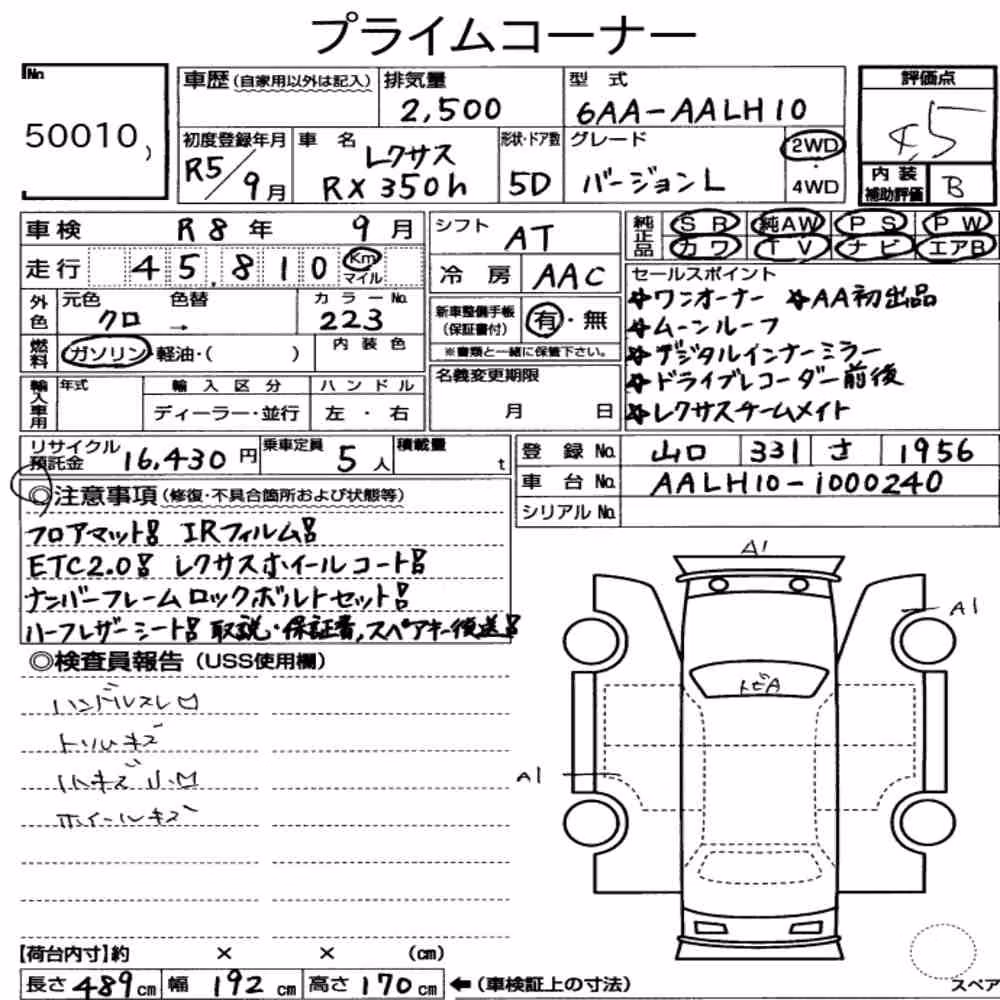 プライムコーナー
No
50010
車歴（自家用以外は記入） 排気量 2,500 型式 6AA-AALH10
評価点 4.5
初度登録年月 R5/9月 車名 レクサス RX 350h 形状・ドア数 5D グレード バージョンL 2WD・4WD
内装補助評価 B
車検 R8年 9月
走行 45,810 Km マイル
外色 元色 クロ 色替 → カラーNo. 223
燃料 ガソリン・軽油・( ) 内装色
輸入車用 年式 輸入区分 ディーラー・並行 ハンドル 左・右
シフト AT
冷房 AAC
新車整備手帳（保証書付） 有・無
※書類と一緒に保管下さい。
名義変更期限 月 日
純正品 SR 純AW PS PW
カワ TV ナビ エアB
セールスポイント
☆ワンオーナー ☆AA初出品
☆ムーンルーフ
☆デジタルインナーミラー
☆ドライブレコーダー前後
☆レクサスチームメイト
リサイクル預託金 16,430円 乗車定員 5人 積載量 t
登録No. 山口 331 さ 1956
車台No. AALH10-1000240
シリアルNo.
◎注意事項（修復・不具合箇所および状態等）
フロアマット品 IRフィルム品
ETC2.0品 レクサスホイールコート品
ナンバーフレームロックボルトセット品
ハーフレザーシート品 取説・保証書,スペアキー後送品
◎検査員報告（USS使用欄）
ハンドルスレ
トリムキズ
ホイールキズ
A1
A1
トビA
A1
【荷台内寸】約 × × (cm)
長さ489cm 幅192cm 高さ170cm ←（車検証上の寸法）
スペア